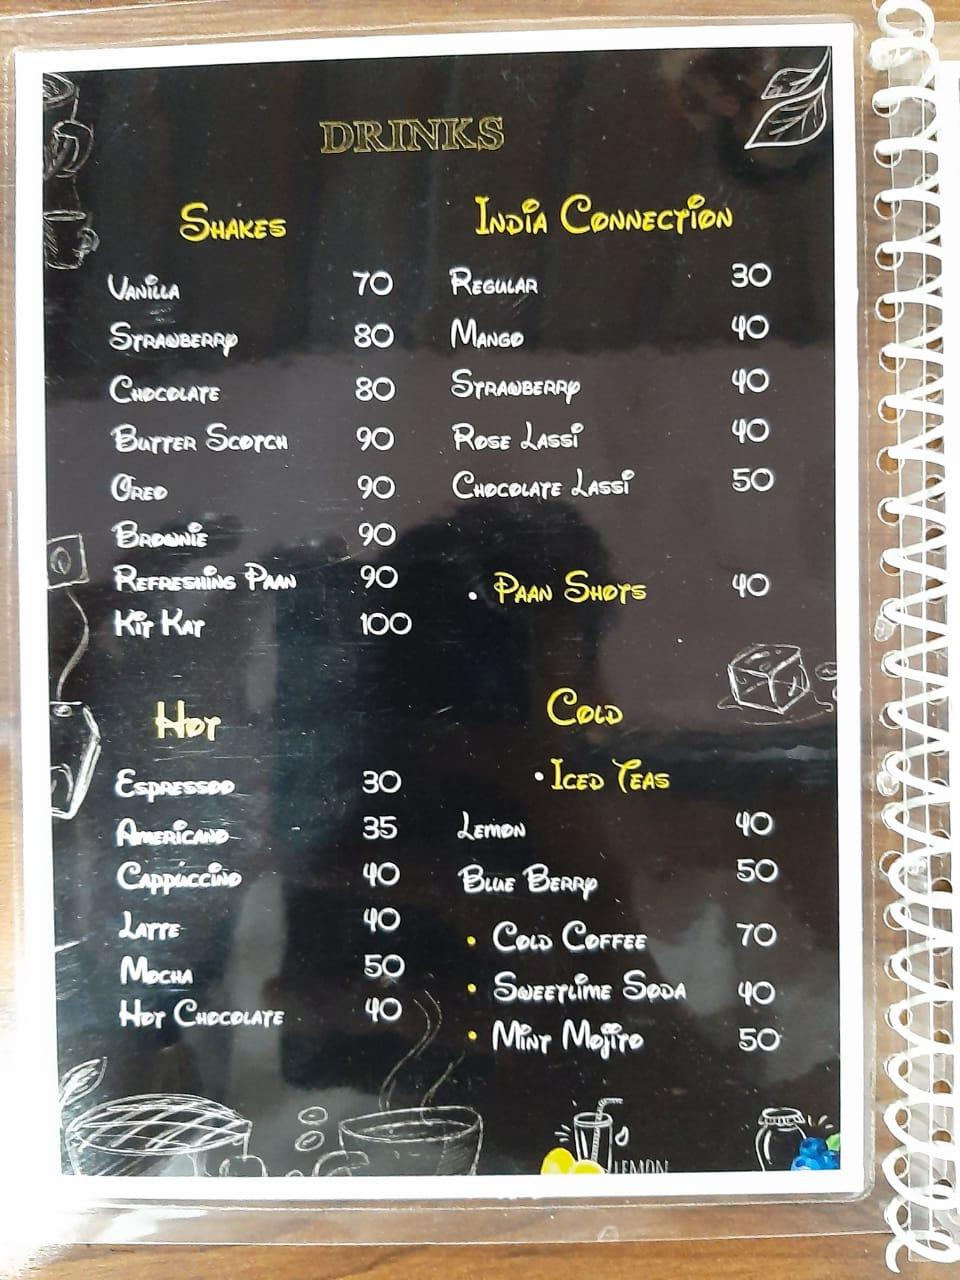 DRINKS
SHAKES
VANILLA 70
STRAWBERRY 80
CHOCOLATE 80
BUTTER SCOTCH 90
OREO 90
BROWNIE 90
REFRESHING PAAN 90
KIT KAT 100
INDIA CONNECTION
REGULAR 30
MANGO 40
STRAWBERRY 40
ROSE LASSI 40
CHOCOLATE LASSI 50
• PAAN SHOTS 40
HOT
ESPRESSOO 30
AMERICANO 35
CAPPUCCINO 40
LATTE 40
MOCHA 50
HOT CHOCOLATE 40
COLD
• ICED TEAS
LEMON 40
BLUE BERRY 50
• COLD COFFEE 70
• SWEETLIME SODA 40
• MINT MOJITO 50
LEMON